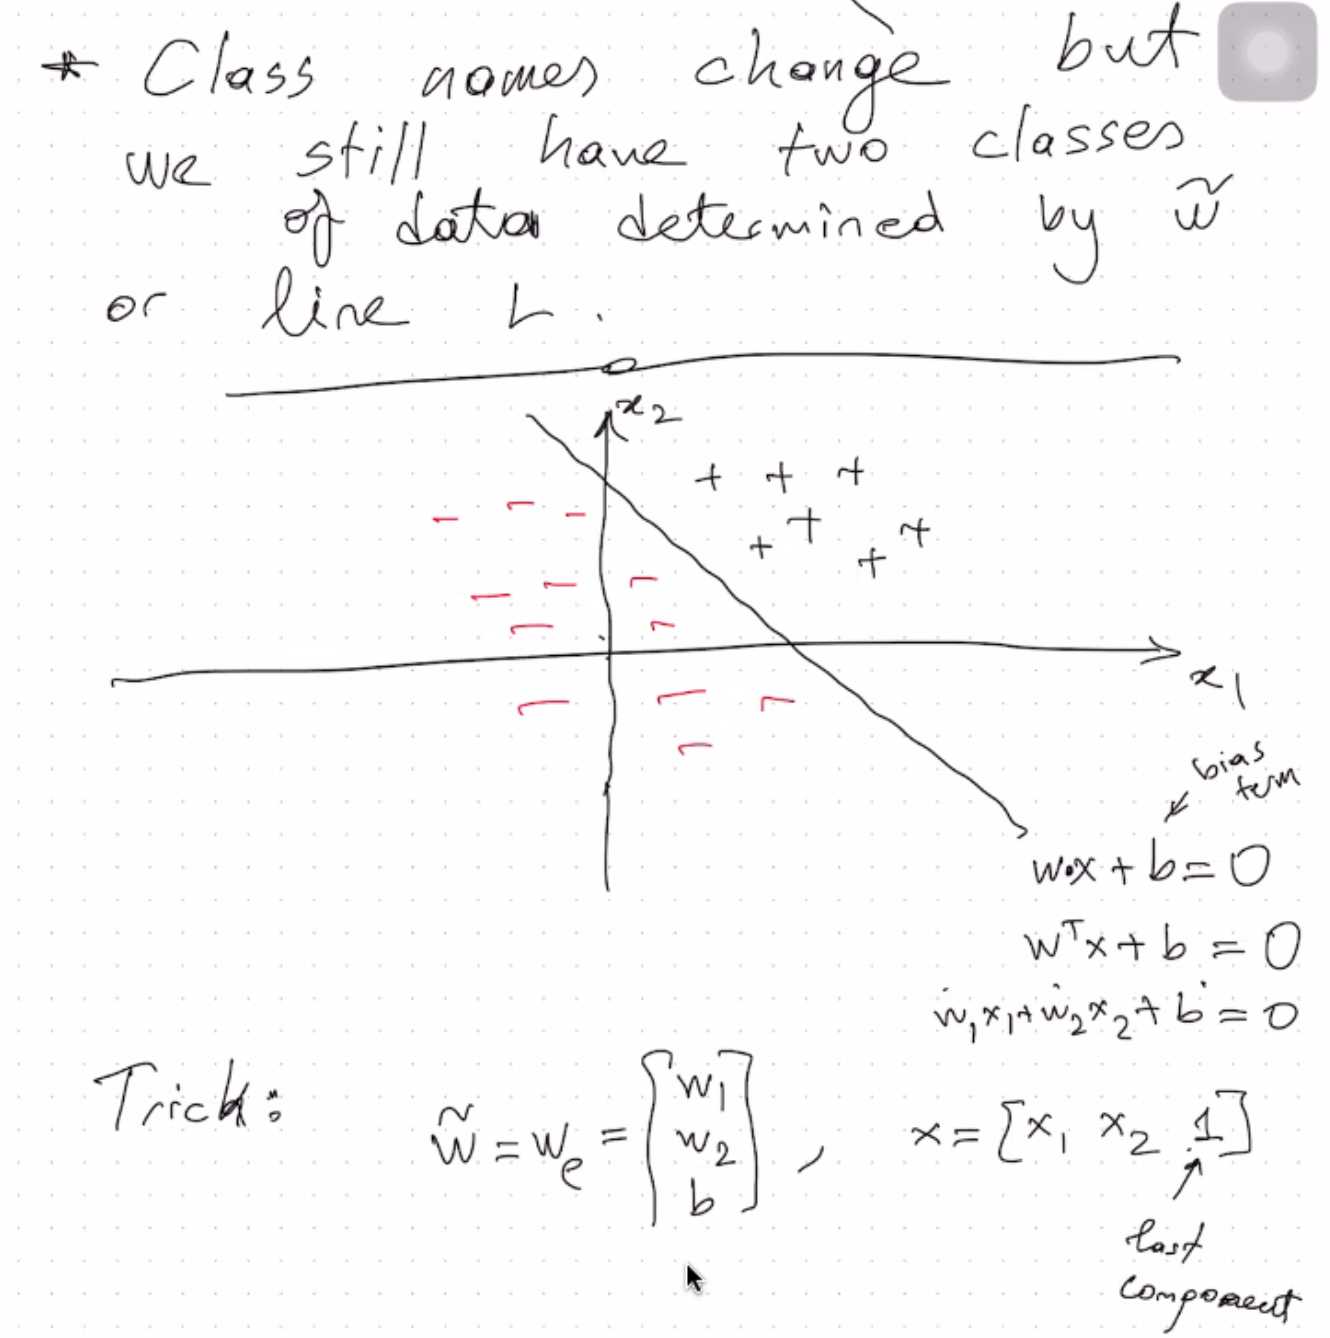 * Class names change but
we still have two classes
of data determined by w̃
or line L.
x₂
+ + +
+ + + +
- - -
- - -
- -
x₁
- - -
-
bias
term
w•x + b = 0
wᵀx + b = 0
w₁x₁+w₂x₂+b=0
Trick: w̃ = wₑ = [w₁ w₂ b], x = [x₁ x₂ 1]
last
component